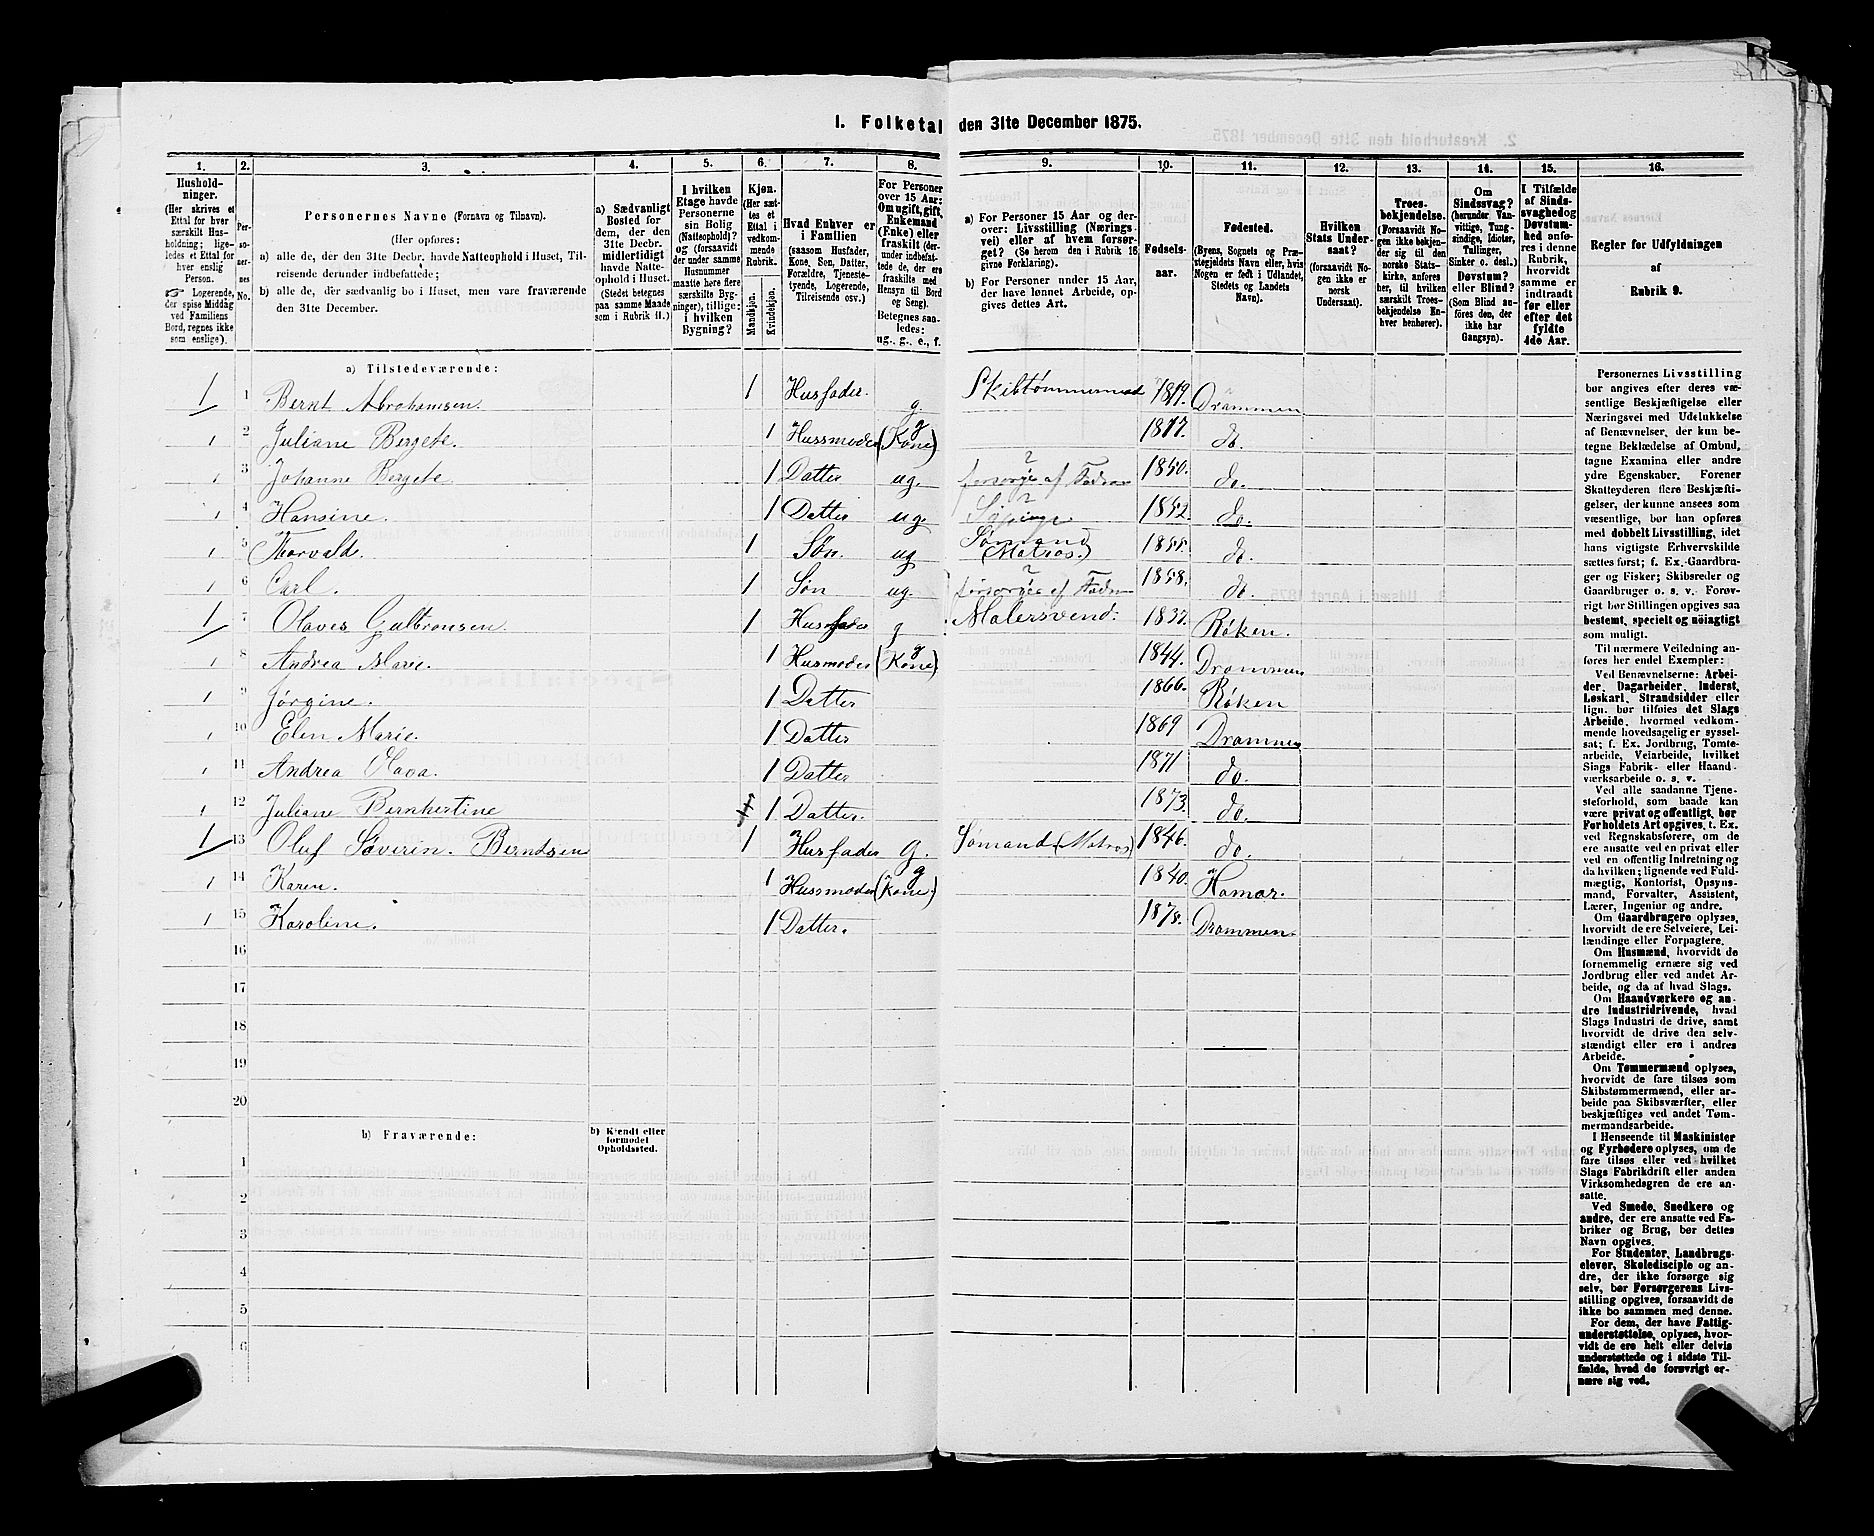 I. Folketal den 31te December 1875.
1. 2. 3. 4. 5. 6. 7. 8. 9. 10. 11. 12. 13. 14. 15. 16.
Husholdninger. (Her skrives et Ettal for hver særskilt Husholdning; ligeledes et Ettal for hver enslig Person. ☞ Logerende, der spise Middag ved Familiens Bord, regnes ikke som enslige).
Personernes No.
Personernes Navne (Fornavn og Tilnavn).
(Her opføres:
a) alle de, der den 31te Decbr. havde Natteophold i Huset, Tilreisende derunder indbefattede;
b) alle de, der sædvanlig bo i Huset, men vare fraværende den 31te December.
a) Sædvanligt Bosted for dem, der den 31te Decbr. midlertidigt havde Natteophold i Huset. (Stedet betegnes paa samme Maade som i Rubrik 11.)
I hvilken Etage havde Personerne sin Bolig (Natteophold)? og (forsaavidt der under samme Husnummer maatte høre flere særskilte Bygninger), tillige: i hvilken Bygning?
Kjøn. (Her sættes et Ettal i vedkommende Rubrik.
Mandkjøn. Kvindekjøn.
Hvad Enhver er i Familien (saasom Husfader, Kone, Søn, Datter, Forældre, Tjenestetyende, Logerende, Tilreisende osv.)
For Personer over 15 Aar: Om ugift, gift, Enkemand (Enke) eller fraskilt (derunder indbefattede de, der ere fraskilte med Hensyn til Bord og Seng). Betegnes saaledes: ug., g., e., f.
a) For Personer 15 Aar og derover: Livsstilling (Næringsvei) eller af hvem forsørget? (Se herom den i Rubrik 16 givne Forklaring).
b) For Personer under 15 Aar, der have lønnet Arbeide, opgives dettes Art.
Fødselsaar.
Fødested. (Byens, Sognets og Præstegjeldets Navn eller, hvis Nogen er født i Udlandet, Stedets og Landets Navn).
Hvilken Stats Undersaat? (forsaavidt Nogen ikke er norsk Undersaat).
Troesbekjendelse. (Forsaavidt Nogen ikke bekjender sig til den norske Statskirke, anføres her, til hvilken særskilt Troesbekjendelse Enhver henhører).
Om Sindssvag? (herunder Vanvittige, Tungsindige, Idioter, Tullinger, Sinker o. desl.) Døvstum? eller Blind? (Som Blind anføres den, der ikke har Gangsyn).
I Tilfælde af Sindssvaghed og Døvstumhed anføres i denne Rubrik, hvorvidt samme er indtraadt før eller efter det fyldte 4de Aar.
Regler for Udfyldningen af Rubrik 9.
a) Tilstedeværende:
1 1 Bernt Abrahamsen. 1 Husfader. g. Skibtømmermad 1819. Drammen
1 2 Juliane Bergete. 1 Hussmoder (Kone) g 1817. do.
1 3 Johanne Bergete 1 Datter ug. forsørges af Fadren ? 1850. do.
1 4 Hansine. 1 Datter ug. ? 1852. do.
1 5 Thorvald. 1 Søn. ug Sømand (Matros.) 1855. do.
1 6 Carl. 1 Søn ug. forsørges af Fadren ? 1858. do.
1 7 Olaves Gulbransen. 1 Husfader g Malersvend. 1832. Røken.
1 8 Andrea Marie. 1 Husmoder (Kone) g 1844. Drammen
1 9 Jørgine. 1 Datter 1866. Røken
1 10 Elen Marie. 1 Datter 1869 Drammen
1 11 Andrea Olava. 1 Datter 1871 do.
1 12 Juliane Bernhertine 1 Datter. 1873. do.
1 13 Oluf Severin. Berndsen 1 Husfader G. Sømand (Matros) 1846. do.
1 14 Karen. 1 Hussmoder (Kone.) g 1840. Hamar.
1 15 Karoline. 1 Datter. 1875. Drammen.
16
17
18
19
20
b) Fraværende:
b) Kjendt eller formodet Opholdssted.
1
2
3
4
5
6
Personernes Livsstilling
bør angives efter deres væ-
sentlige Beskjæftigelse eller
Næringsvei med Udelukkelse
af Benævnelser, der kun be-
tegne Beklædelse af Ombud,
tagne Examina eller andre
ydre Egenskaber. Forener
Skatteyderen flere Beskjæfti-
gelser, der kunne ansees som
væsentlige, bør han opføres
med dobbelt Livsstilling, idet
hans vigtigste Erhvervskilde
sættes først; f. Ex. Gaardbru-
ger og Fisker; Skibsreder og
Gaardbruger o. s. v. Forøv-
rigt bør Stillingen opgives saa
bestemt, specielt og nöiagtigt
som muligt.
Til nærmere Veiledning an-
føres her endel Exempler:
Ved Benævnelserne: Arbei-
der, Dagarbeider, Inderst,
Løskarl, Strandsidder eller
lign. bør tilføies det Slags
Arbeide, hvormed vedkom-
mende hovedsagelig er syssel-
sat; f. Ex. Jordbrug, Tomte-
arbeide, Veiarbeide, hvilket
Slags Fabrik- eller Haand-
værksarbeide o. s. v.
Ved alle saadanne Tjene-
steforhold, som baade kan
være privat og offentligt, bør
Forholdets Art opgives, t. Ex.
ved Regnskabsførere, om de
ere ansatte ved en privat eller
ved en offentlig Indretning og
da hvilken; lignende ved Fuld-
mægtig, Kontorist, Opsyns-
mand, Forvalter, Assistent,
Lærer, Ingeniør og andre.
Om Gaardbrugere oplyses,
hvorvidt de ere Selveiere, Lei-
lændinge eller Forpagtere.
Om Husmænd, hvorvidt de
fornemmelig ernære sig ved
Jordbrug eller ved andet Ar-
beide, og da af hvad Slags.
Om Haandværkere og an-
dre Industridrivende, hvad
Slags Industri de drive, samt
hvorvidt de drive den selv-
stændigt eller ere i andres
Arbeide.
Om Tømmermænd oplyses,
hvorvidt de fare tilsøs som
Skibstømmermænd, eller ar-
beide paa Skibsværfter, eller
beskjæftiges ved andet Tøm-
mermandsarbeide.
I Henseende til Maskinister
og Fyrbødere oplyses, om de
fare tilsøs eller ved hvilket
Slags Fabrikdrift eller anden
Virksomhedsgren de ere an-
satte.
Ved Smede, Snedkere og
andre, der ere ansatte ved Fa-
briker og Brug, bør dettes
Navn opgives.
For Studenter, Landbrugs-
elever, Skoledisciple og an-
dre, der ikke forsørge sig
selv, bør Forsørgerens Livs-
stilling opgives, forsaavidt de
ikke bo sammen med denne.
For dem, der have Fattig-
understøttelse, oplyses, hvor-
vidt de ere helt eller delvis
understøttede og i sidste Til-
fælde, hvad de forøvrigt er-
nære sig ved.